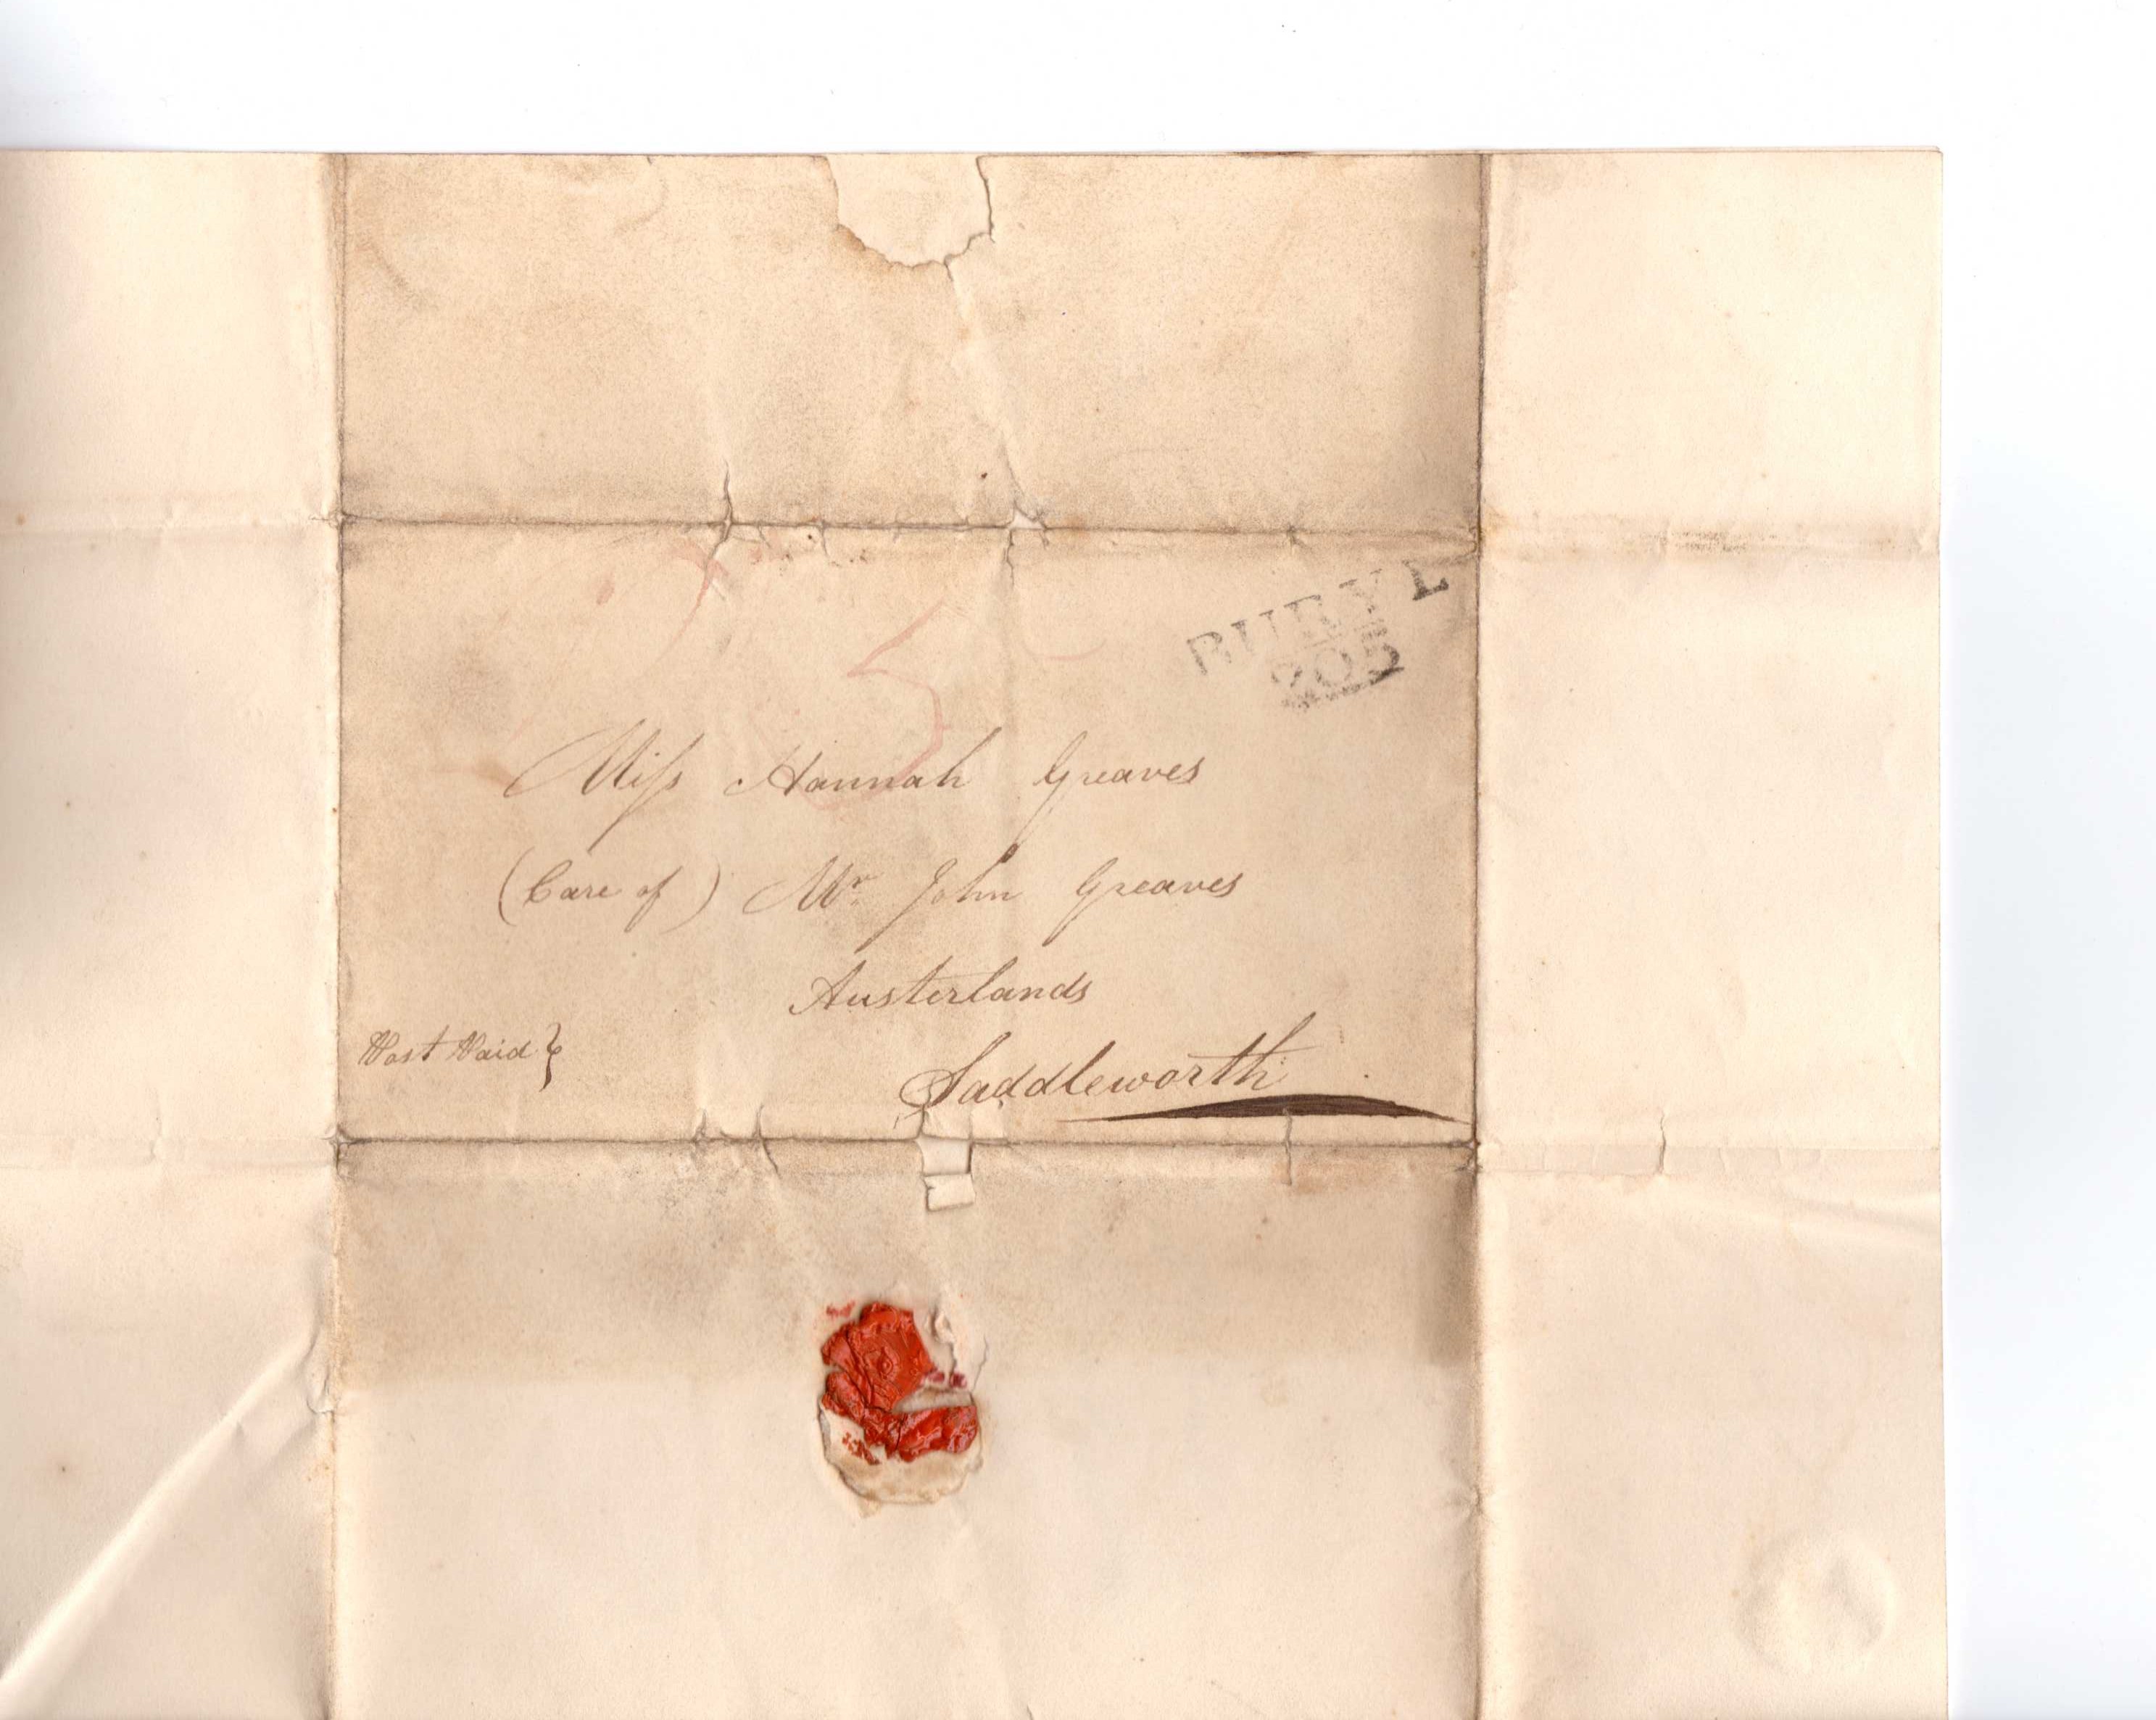 BURY L
205
5
Miſs Hannah Greaves
(Care of) Mr. John Greaves
Austerlands
Post Paid
Saddleworth